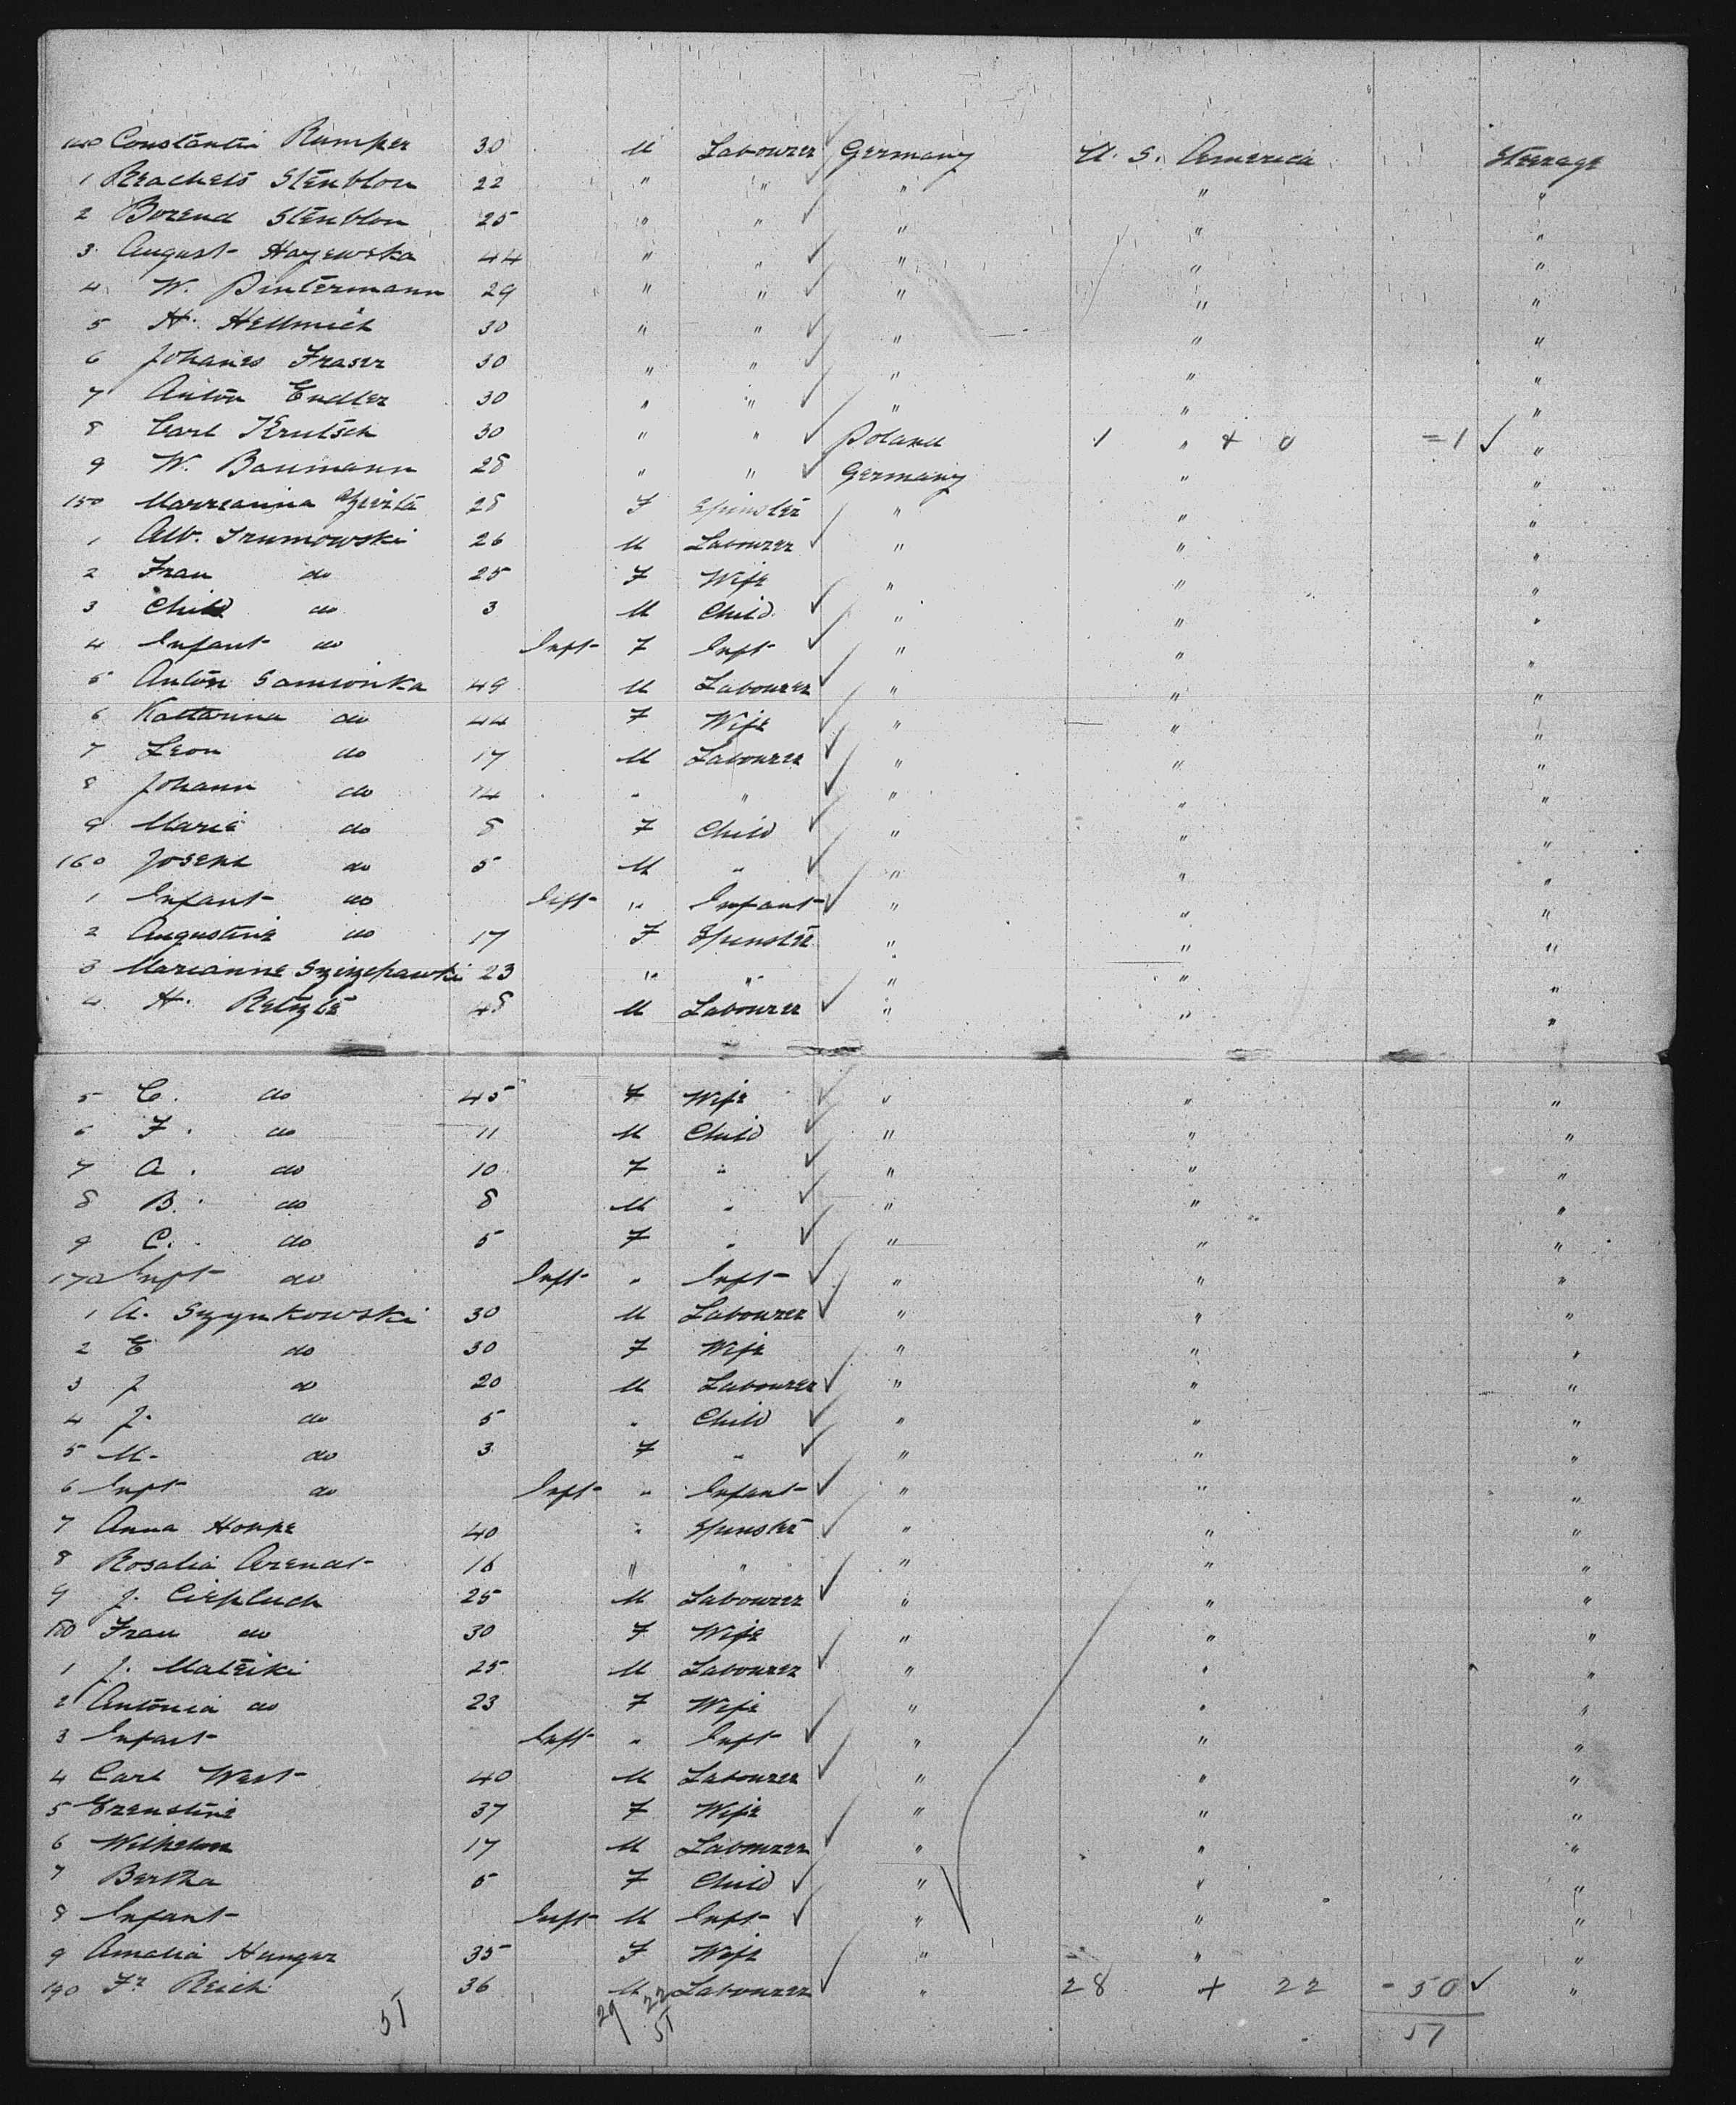 140 Constantin Rumper 30 M Labourer Germany U. S. America Steerage
1 Reachets Stenblon 22 " " " " "
2 Borend Stenblon 25 " " " " "
3 August Hayewska 44 " " " " "
4 W. Pintermann 29 " " " " "
5 H. Hellmich 30 " " " " "
6 Johanes Fraser 30 " " " " "
7 Anton Endler 30 " " " " "
8 Carl Krutsch 30 " " Poland 1 " + 0 = 1 "
9 W. Baumann 28 " " Germany " "
150 Marreanna 28 F Spinster " " "
1 Alb. Trumowski 26 M Labourer " " "
2 Frau do 25 F Wife " " "
3 Child do 3 M Child " " "
4 Infant do Inft F Inft " " "
5 Anton Samionka 49 M Labourer " " "
6 Kattarina do 44 F Wife " " "
7 Leon do 17 M Labourer " " "
8 Johann do 14 " " " " "
9 Marie do 8 F Child " " "
160 Joseph do 5 M " " " "
1 Infant do Inft " Infant " " "
2 Augustine do 17 F Spinster " " "
3 Marianne Szizepawski 23 " " " " "
4 H. Retzle 48 M Labourer " " "
5 C. do 45 F Wife " " "
6 F. do 11 M Child " " "
7 A. do 10 F " " " "
8 B. do 8 M " " " "
9 C. do 5 F " " " "
170 Inft do Inft " Inft " " "
1 A. Szynkowski 30 M Labourer " " "
2 E do 30 F Wife " " "
3 J do 20 M Labourer " " "
4 J. do 5 " Child " " "
5 M. do 3 F " " " "
6 Inft do Inft " Infant " " "
7 Anna Hoppe 40 " Spinster " " "
8 Rosalia Arendt 16 " " " " "
9 J. Ciepluch 25 M Labourer " " "
180 Frau do 30 F Wife " " "
1 J. Mateiki 25 M Labourer " " "
2 Antonia do 23 F Wife " " "
3 Infant Inft " Inft " " "
4 Carl West 40 M Labourer " " "
5 Ernestine 37 F Wife " " "
6 Wilhelm 17 M Labourer " " "
7 Bertha 5 F Child " " "
8 Infant Inft M Inft " " "
9 Amalia Hunger 35 F Wife " " "
190 Fr Reich 36 M Labourer " 28 + 22 = 50 "
51 29 22 51 51